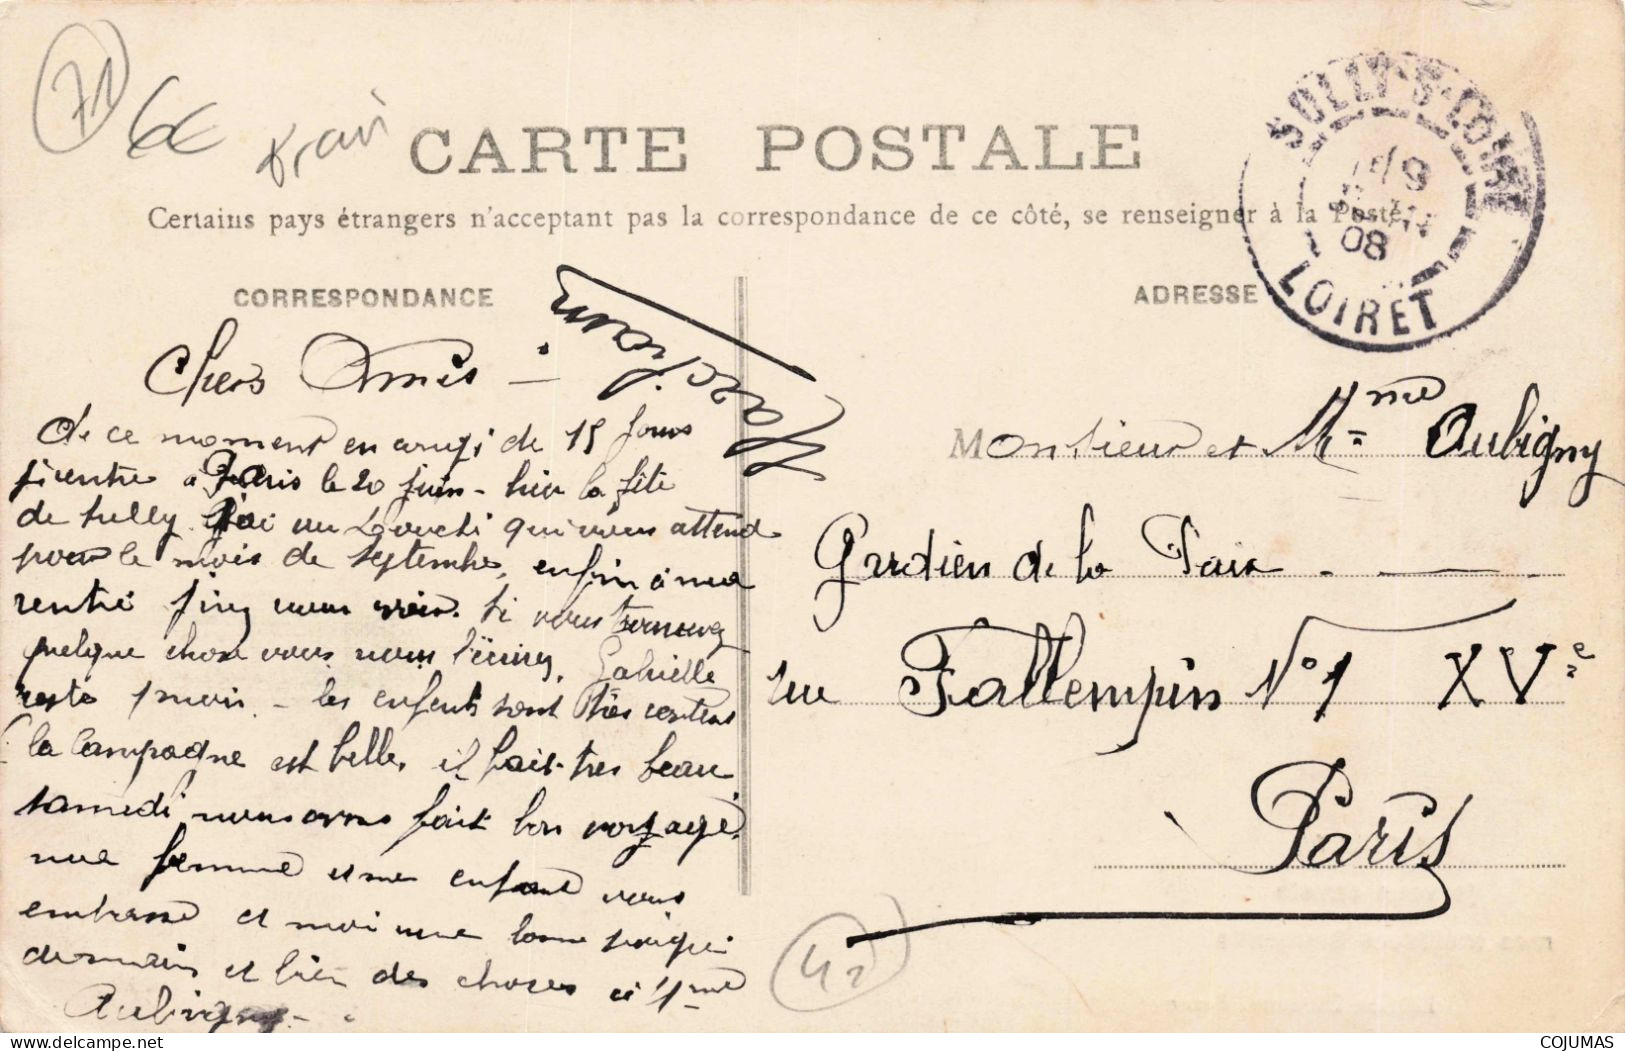 71
6€
CARTE POSTALE
Certains pays étrangers n'acceptant pas la correspondance de ce côté, se renseigner à la Poste.
SULLY-S-LOIRE
08
LOIRET
CORRESPONDANCE
ADRESSE
Chers Amis –
de ce moment en congé de 15 jours
je rentre à Paris le 20 juin – hier la fête
de Sully j'ai vu qui vous attend
pour le mois de septembre, enfin à ma
rentré j'irez vous voir. Si vous trouvez
quelque chose vous nous l'écrirez, Gabrielle
reste 1 mois – les enfants sont très contens
la Campagne est belle, il fait très beau
samedi, nous avons fait bon voyage,
ma femme et mes enfant vous
embrasse et moi une bonne poigné
de main et bien des choses à Mme
Aubigny –
Monsieur et Mr = Mme Aubigny
Gardien de la Paix . —
rue Fallempin N° 1 XVe
Paris
42
www.delcampe.net
COJUMAS